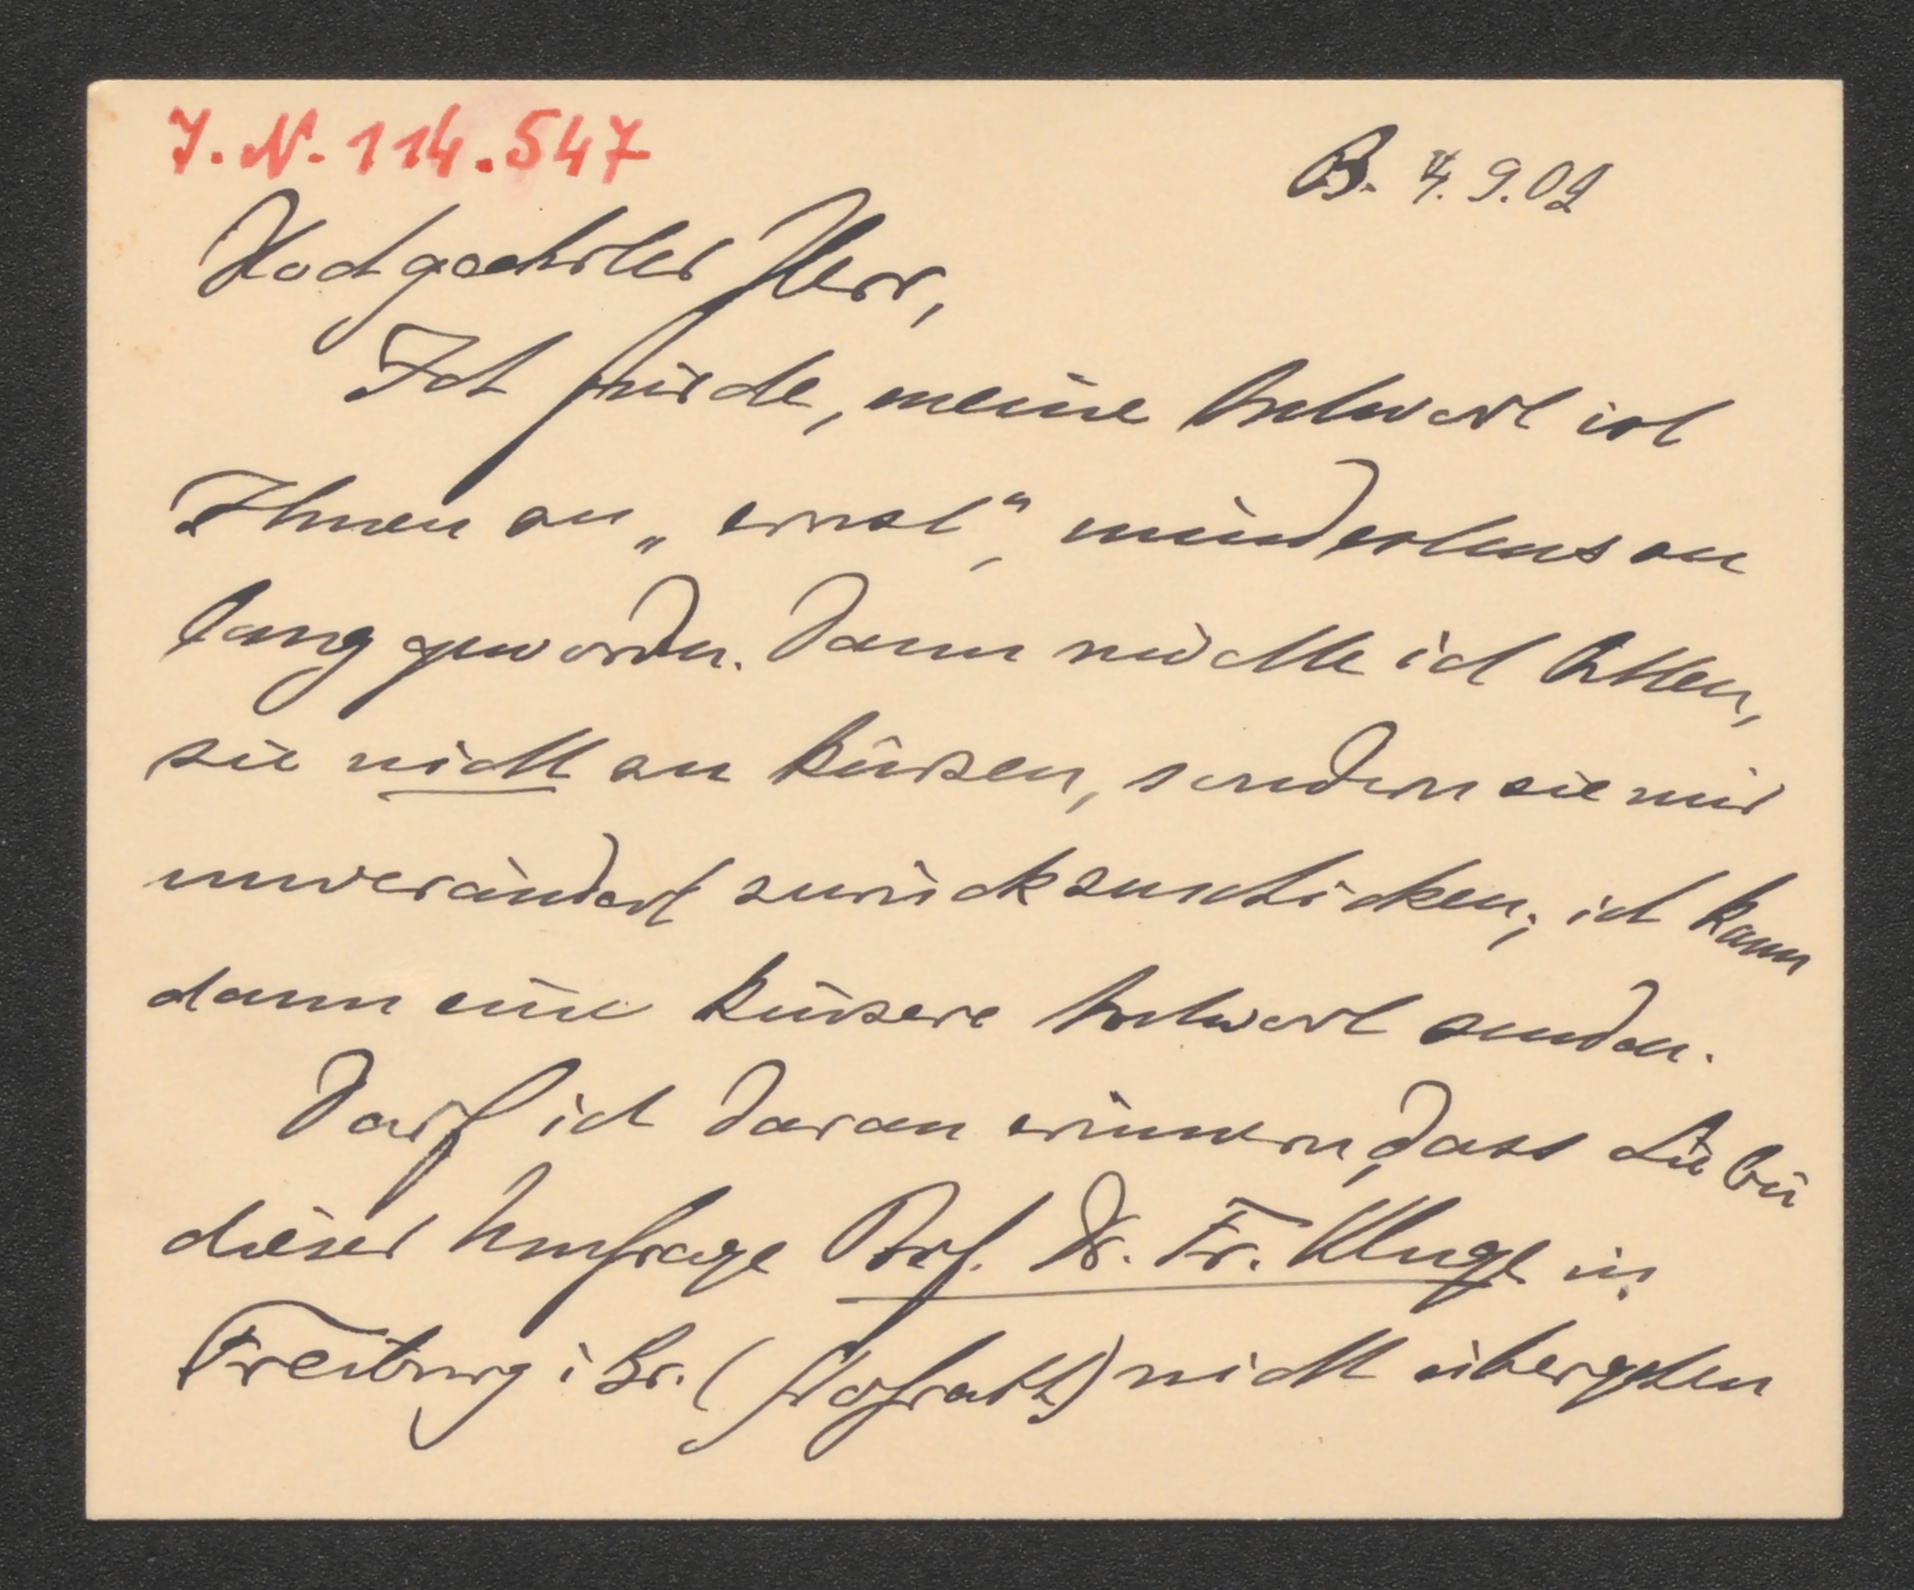 J. N. 114.547
B. 4. 9. 02
Hochgeehrter Herr,
Ich fürchte, meine Antwort ist
Ihnen zu „ernst“, mindestens zu
lang geworden. Dann möchte ich bitten,
sie nicht zu kürzen, sondern sie mir
unverändert zurückzuschicken; ich kann
dann eine kürzere Antwort senden.
Darf ich daran erinnern, dass Sie bei
dieser Umfrage Prof. Dr. Fr. Kluge in
Freiburg i Br. (Hofrath) nicht übergehen